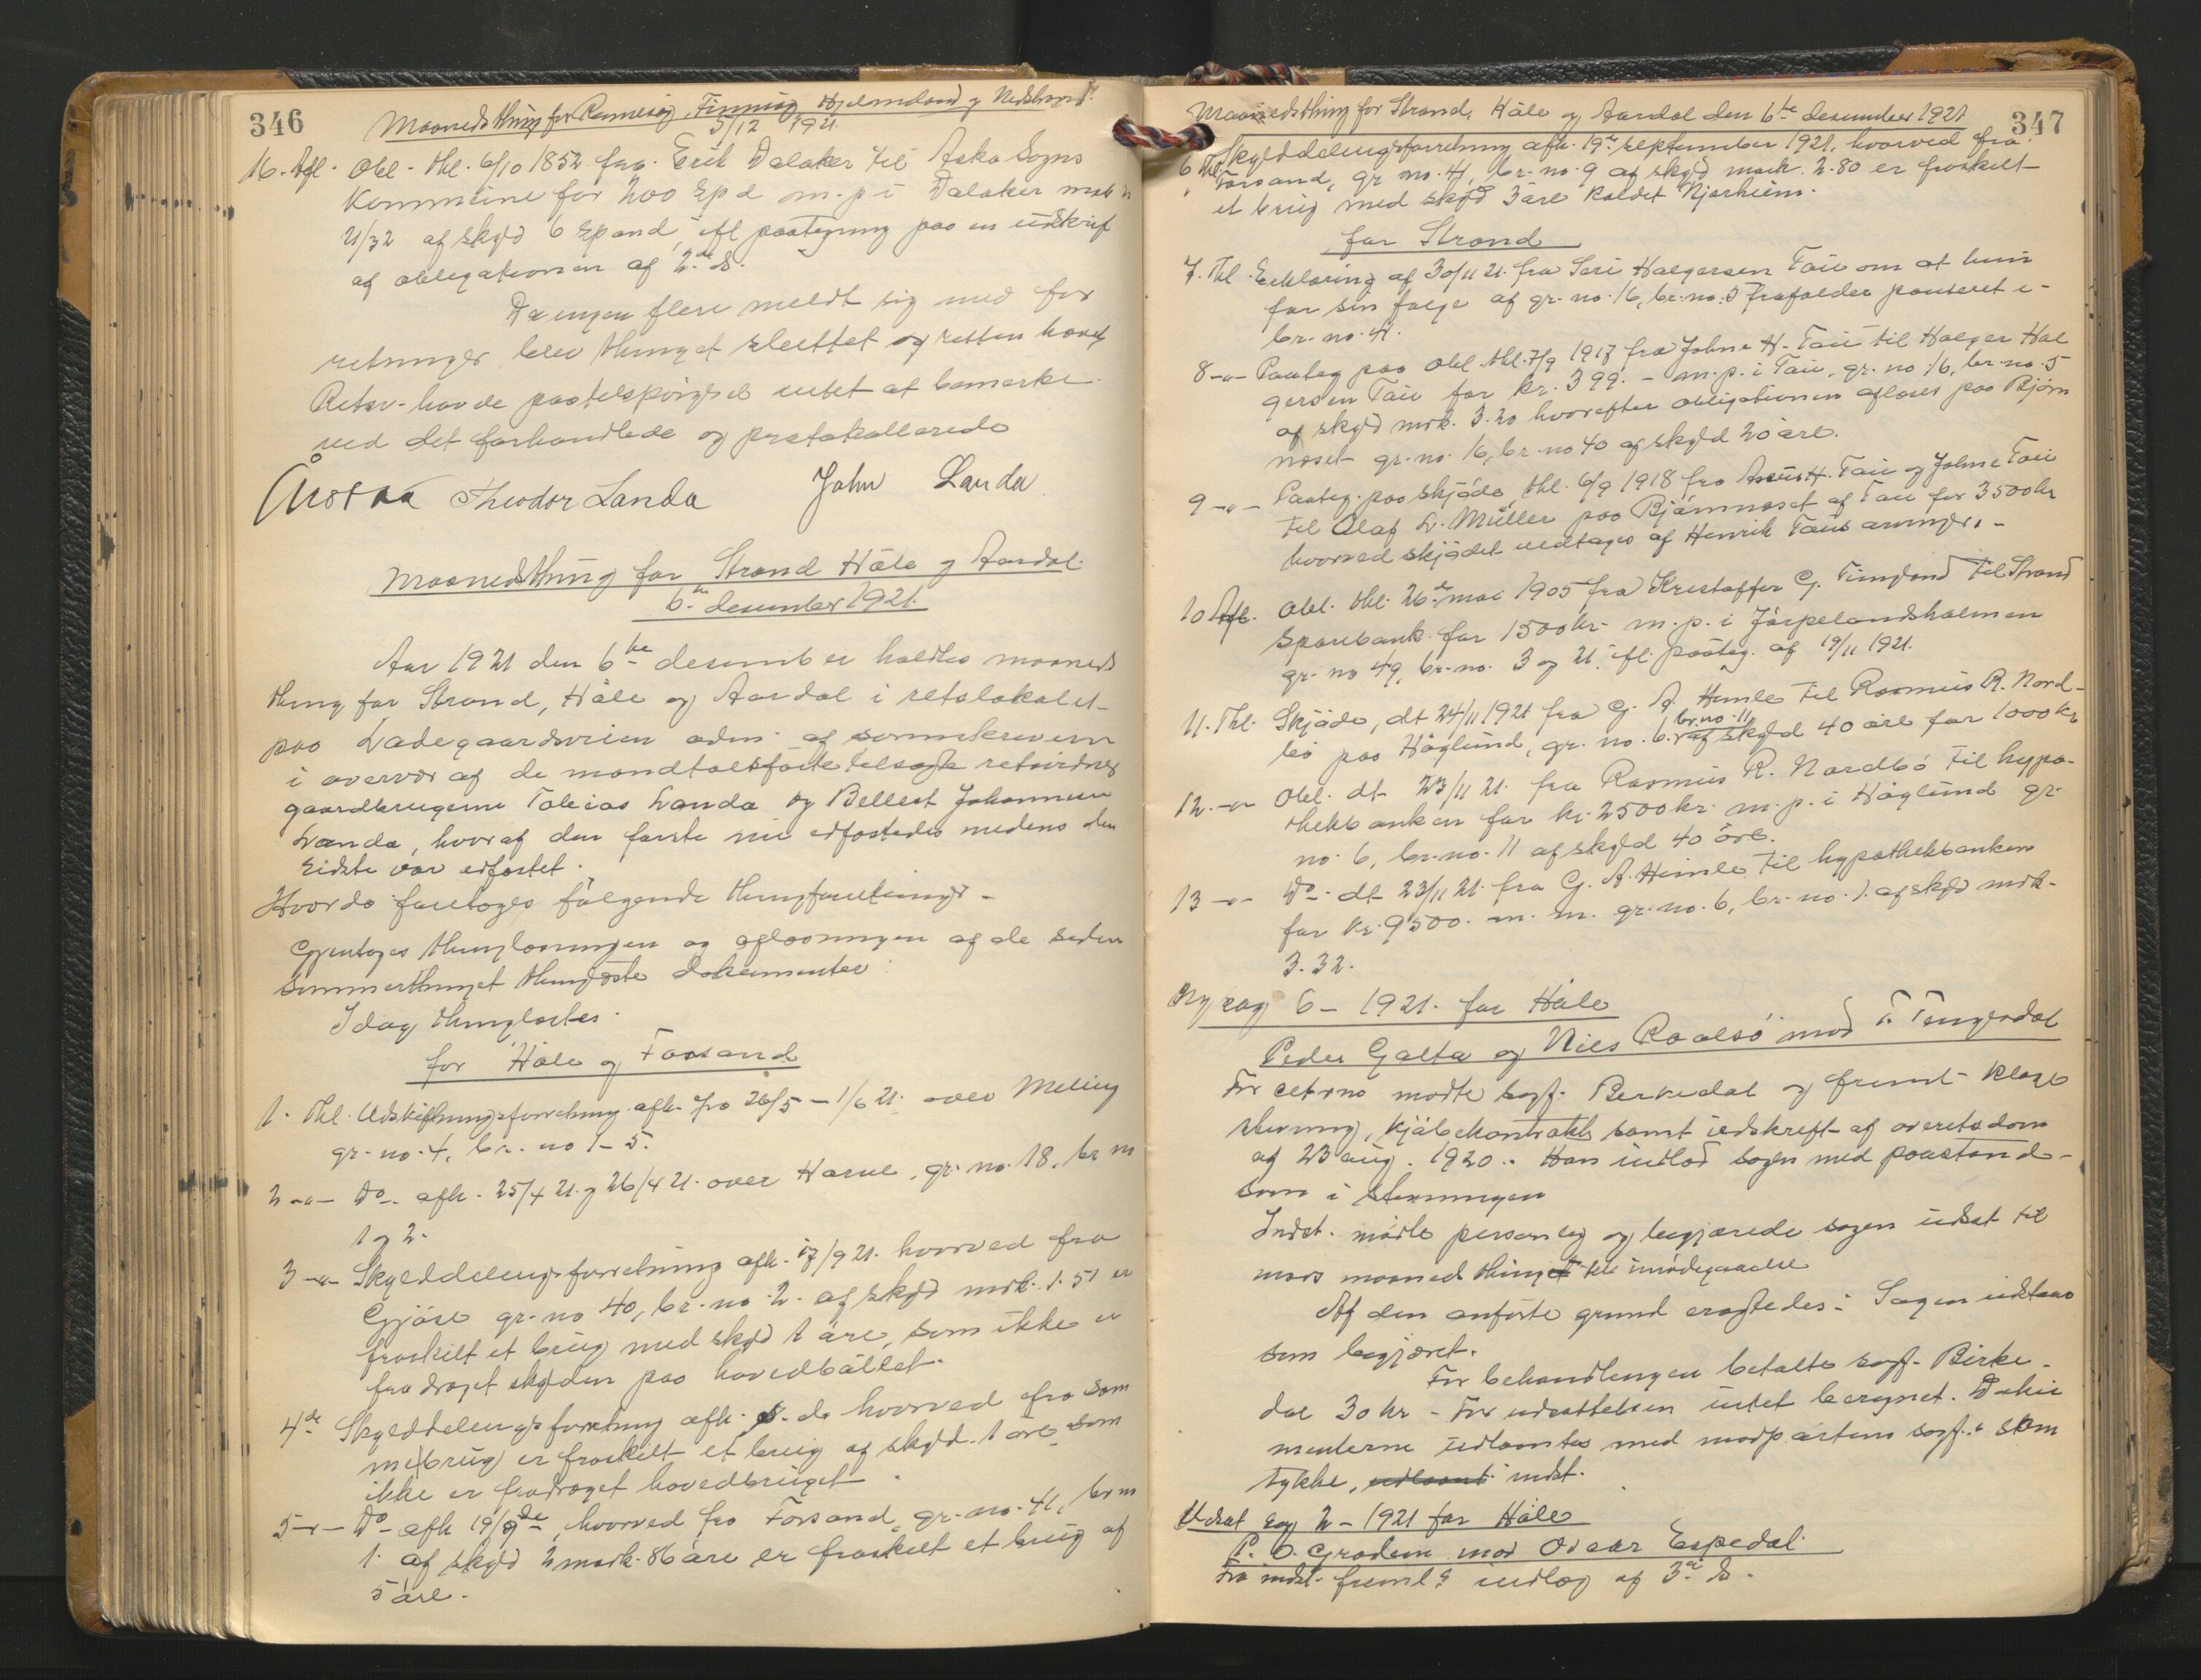 346
Maanedsthing for Rennesøy, Finnøy, Hjelmeland og Nedstrand
5/12 1921.
16. Afl. Obl. thl. 6/10 1852 fra Erik Dalaker til Aska Sogns
Kommune for 200 Spd m. p i Dalaker
21/32 af skyld 6 Spand, ifl paategning paa en udskrift
af obligationen af 2. ds.
Da ingen flere meldt sig med for
retninger blev thinget sluttet og retten hævet
Retsv. havde paa tilspørgsel intet at bemærke
ved det forhandlede og protokollerede
Theodor Landa John Landa
Maanedsthing for Strand Høle og Aardal
6te desember 1921.
Aar 1921 den 6te desember holdtes maaneds
thing for Strand, Høle og Aardal i retslokalet
paa Ladegaardsveien adm. af sorenskriveren
i overvær af de mandtalsførte tilsagte retsvidner
gaardbrugerne Tobias Landa og Bellest Johannesen
Landa, hvoraf den første nu edfæstedes medens den
sidste var edfæstet.
Hvorda foretoges følgende thingforretninger -
Gjentoges thinglæsningen og aflæsningen af de siden
sommerthinget thinglæste dokumenter
Idag thinglæstes.
for Høle og Forsand
1. Thl. Udskiftningsforretning afh. fra 26/5 - 1/6 21. over Meling
gr. no. 4, br. no 1-5.
2 -"- Do. afh. 25/4 21. og 26/4 21. over Haave, gr. no. 18, br no
1 og 2.
3 -"- Skylddelingsforretning afh. 17/9 21. hvorved fra
Gjøse gr. no 40, br. no. 2. af skyld mrk. 1.51 er
fraskilt et brug med skyld 1 øre, som ikke er
fradraget skylden paa hovedbølet.
4de Skylddelingsforretning afh. s. d. hvorved fra sam
me brug er fraskilt et brug af skyld. 1 øre som
ikke er fradraget hovedbruget.
5 -"- Do afh 19/9 de, hvorved fra Forsand, gr. no. 41, br no
1. af skyld 2 mark. 86 øre er fraskilt et brug af
5 øre.
Maanedsthing for Strand, Høle og Aardal den 6te desember 1921
347
6 Thl. Skylddelingsforretning afh. 19de september 1921, hvorved fra
Forsand, gr no. 41, br. no. 9 af skyld mark. 2.80 er fraskilt
et brug med skyld 3 øre kaldet Njarheim.
for Strand
7. Thl. Erklæring af 30/11 21. fra Seri Halgersen Tau om at hun
for sin følge af gr. no. 16, br. no. 5 frafalder panteret i
br. no. 41.
8 -"- Paateg paa Obl. thl. 7/9 1917 fra Johne H. Tau til Halger Hal
gersen Tau for kr. 399. - m. p. i Tau, gr. no 16, br. no. 5
af skyld mrk. 3.20 hvorefter obligationen aflæses paa Bjørn
næset gr. no. 16, br. no 40 af skyld 20 øre.
9 -"- Paateg. paa skjøde thl. 6/9 1918 fra H. Tau og Johne Tau
til Olaf L. Müller paa Bjørnnæset af Tau for 3500 kr
hvorved skjødet vedtages af Henrik Taus arvinger. -
10 Afl. Obl. thl. 26de mai 1905 fra Kristoffer G. Fingland til Strand
Sparebank for 1500 kr. m. p. i Jørpelandsholmen
gr. no 49, br. no. 3 og 21. ifl. paateg. af 19/11 1921.
11. Thl. Skjøde, dt 24/11 1921 fra G. A. Himle til Rasmus R. Nord-
bø paa Høglund, gr. no. 6. br. no. 11 af skyld 40 øre for 1000 kr
12. -"- Obl. dt 23/11 21. fra Rasmus R. Nordbø til hypo-
thekbanken for kr. 2500 kr. m. p. i Høglund gr.
no. 6, br. no. 11 af skyld 40 øre.
13 -"- Do. dt 23/11 21. fra G. A. Himle til hypothekbanken
for kr. 9500. m. m. gr. no. 6, br. no. 1. af skyld mrk.
3.32.
Ny sag 6 - 1921. for Høle
Peder Galta og Nils Raalsø mod T. Tengesdal
For citrne mødte sagf. Berkedal og freml. klage
stevning, kjøbekontrakt samt udskrift af overetsdom
af 23 aug. 1920. Han indlod sagen med paastand
som i stevningen
Indst. mødte personlig og begjærede sagen udsat til
mars maanedsthinget til imødegaaelse
Af den anførte grund eragtedes: Sagen udstaar
som begjæret.
For behandlingen betalte sagf. Birke-
dal 30 kr. - For udsættelsen intet beregnet. Doku
menterne udlaantes med modpartens sagf.s sam
tykke, udlaant indst.
Udsat sag 2 - 1921 for Høle
P. O. Gradem mod Oscar Espedal
Fra indst. freml. indlæg af 3de ds.